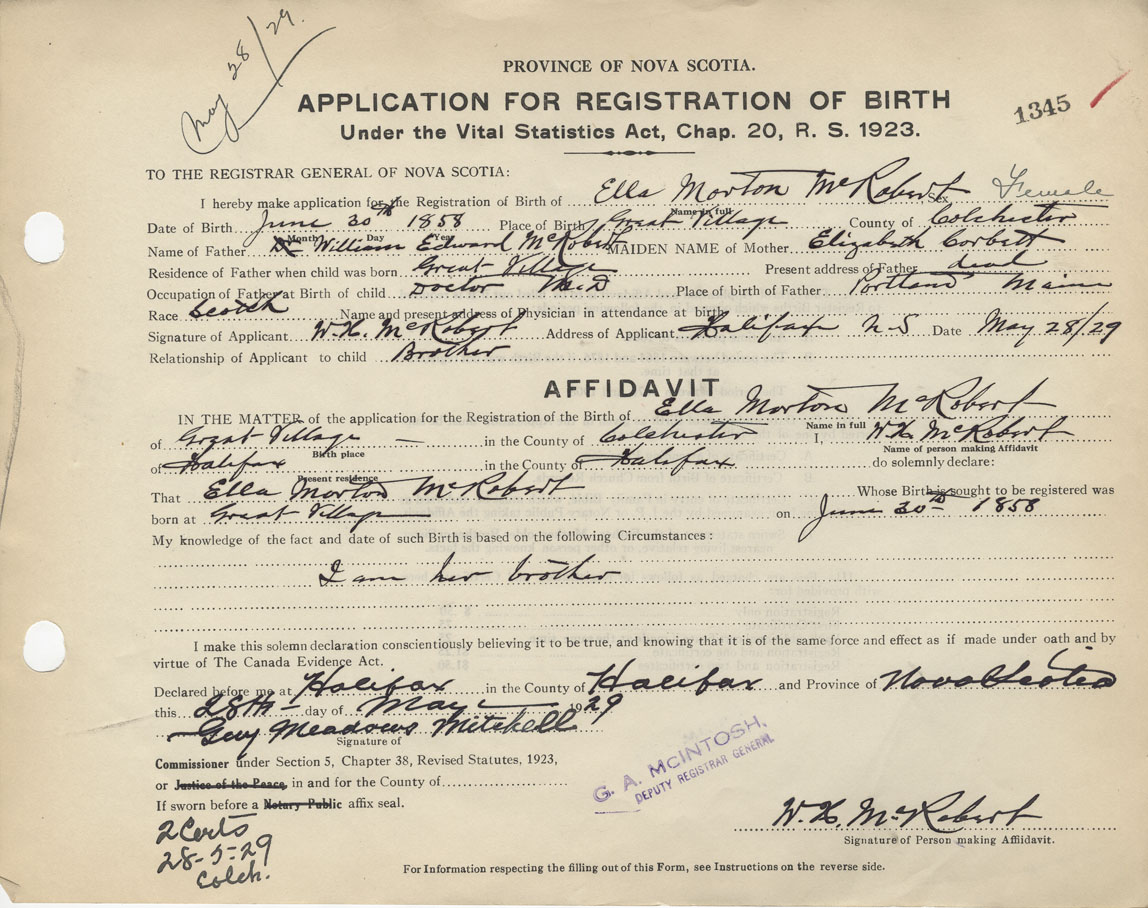 May 28/29.
PROVINCE OF NOVA SCOTIA.
APPLICATION FOR REGISTRATION OF BIRTH
1345
Under the Vital Statistics Act, Chap. 20, R. S. 1923.
TO THE REGISTRAR GENERAL OF NOVA SCOTIA:
I hereby make application for the Registration of Birth of Ella Morton McRobert Sex Female
Name in full
Date of Birth June 30th 1858 Place of Birth Great Village County of Colchester
Month Day Year
Name of Father Dr William Edward McRobert MAIDEN NAME of Mother Elizabeth Corbett
Residence of Father when child was born Great Village Present address of Father dead
Occupation of Father at Birth of child Doctor M.D Place of birth of Father Portland Maine
Race Scotch Name and present address of Physician in attendance at birth
Signature of Applicant W.H. McRobert Address of Applicant Halifax N-S Date May 28/29
Relationship of Applicant to child Brother
AFFIDAVIT
IN THE MATTER of the application for the Registration of the Birth of Ella Morton McRobert
Name in full
of Great Village in the County of Colchester I, W H McRobert
Birth place Name of person making Affidavit
of Halifax in the County of Halifax do solemnly declare:
Present residence
That Ella Morton McRobert Whose Birth is sought to be registered was
born at Great Village on June 30th 1858
My knowledge of the fact and date of such Birth is based on the following Circumstances:
I am her brother
I make this solemn declaration conscientiously believing it to be true, and knowing that it is of the same force and effect as if made under oath and by
virtue of The Canada Evidence Act.
Declared before me at Halifax in the County of Halifax and Province of Nova Scotia
this 28th day of May 1929
Guy Meadows Mitchell
Signature of
Commissioner under Section 5, Chapter 38, Revised Statutes, 1923,
or Justice of the Peace, in and for the County of
If sworn before a Notary Public affix seal.
G. A. MCINTOSH,
DEPUTY REGISTRAR GENERAL
W. H. McRobert
Signature of Person making Affiidavit.
2 Certs
28-5-29
Colch.
For Information respecting the filling out of this Form, see Instructions on the reverse side.